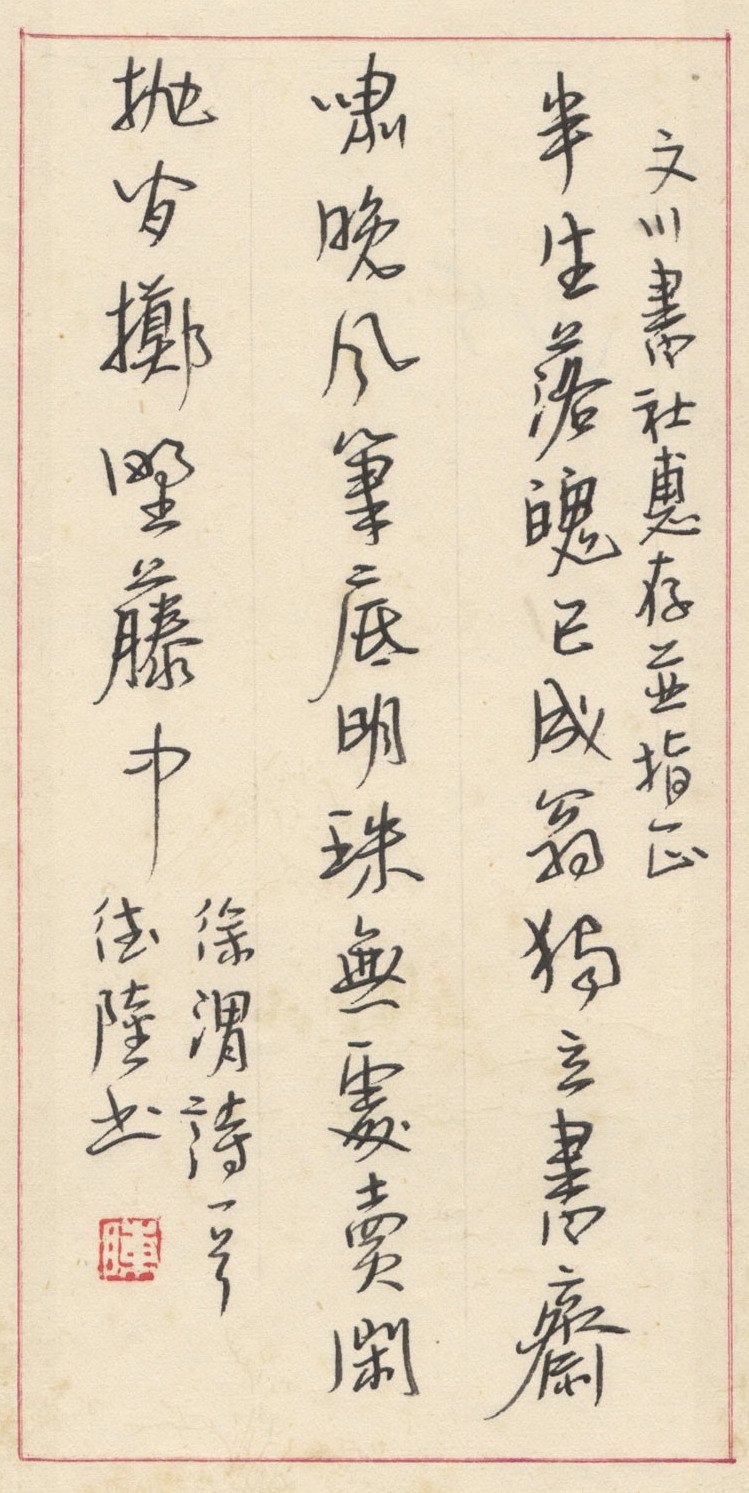 文川書社惠存並指正
半生落魄已成翁獨立書齋
嘯晚風筆底明珠無處賣閑
拋閒擲野藤中
徐渭詩一首
德陸书